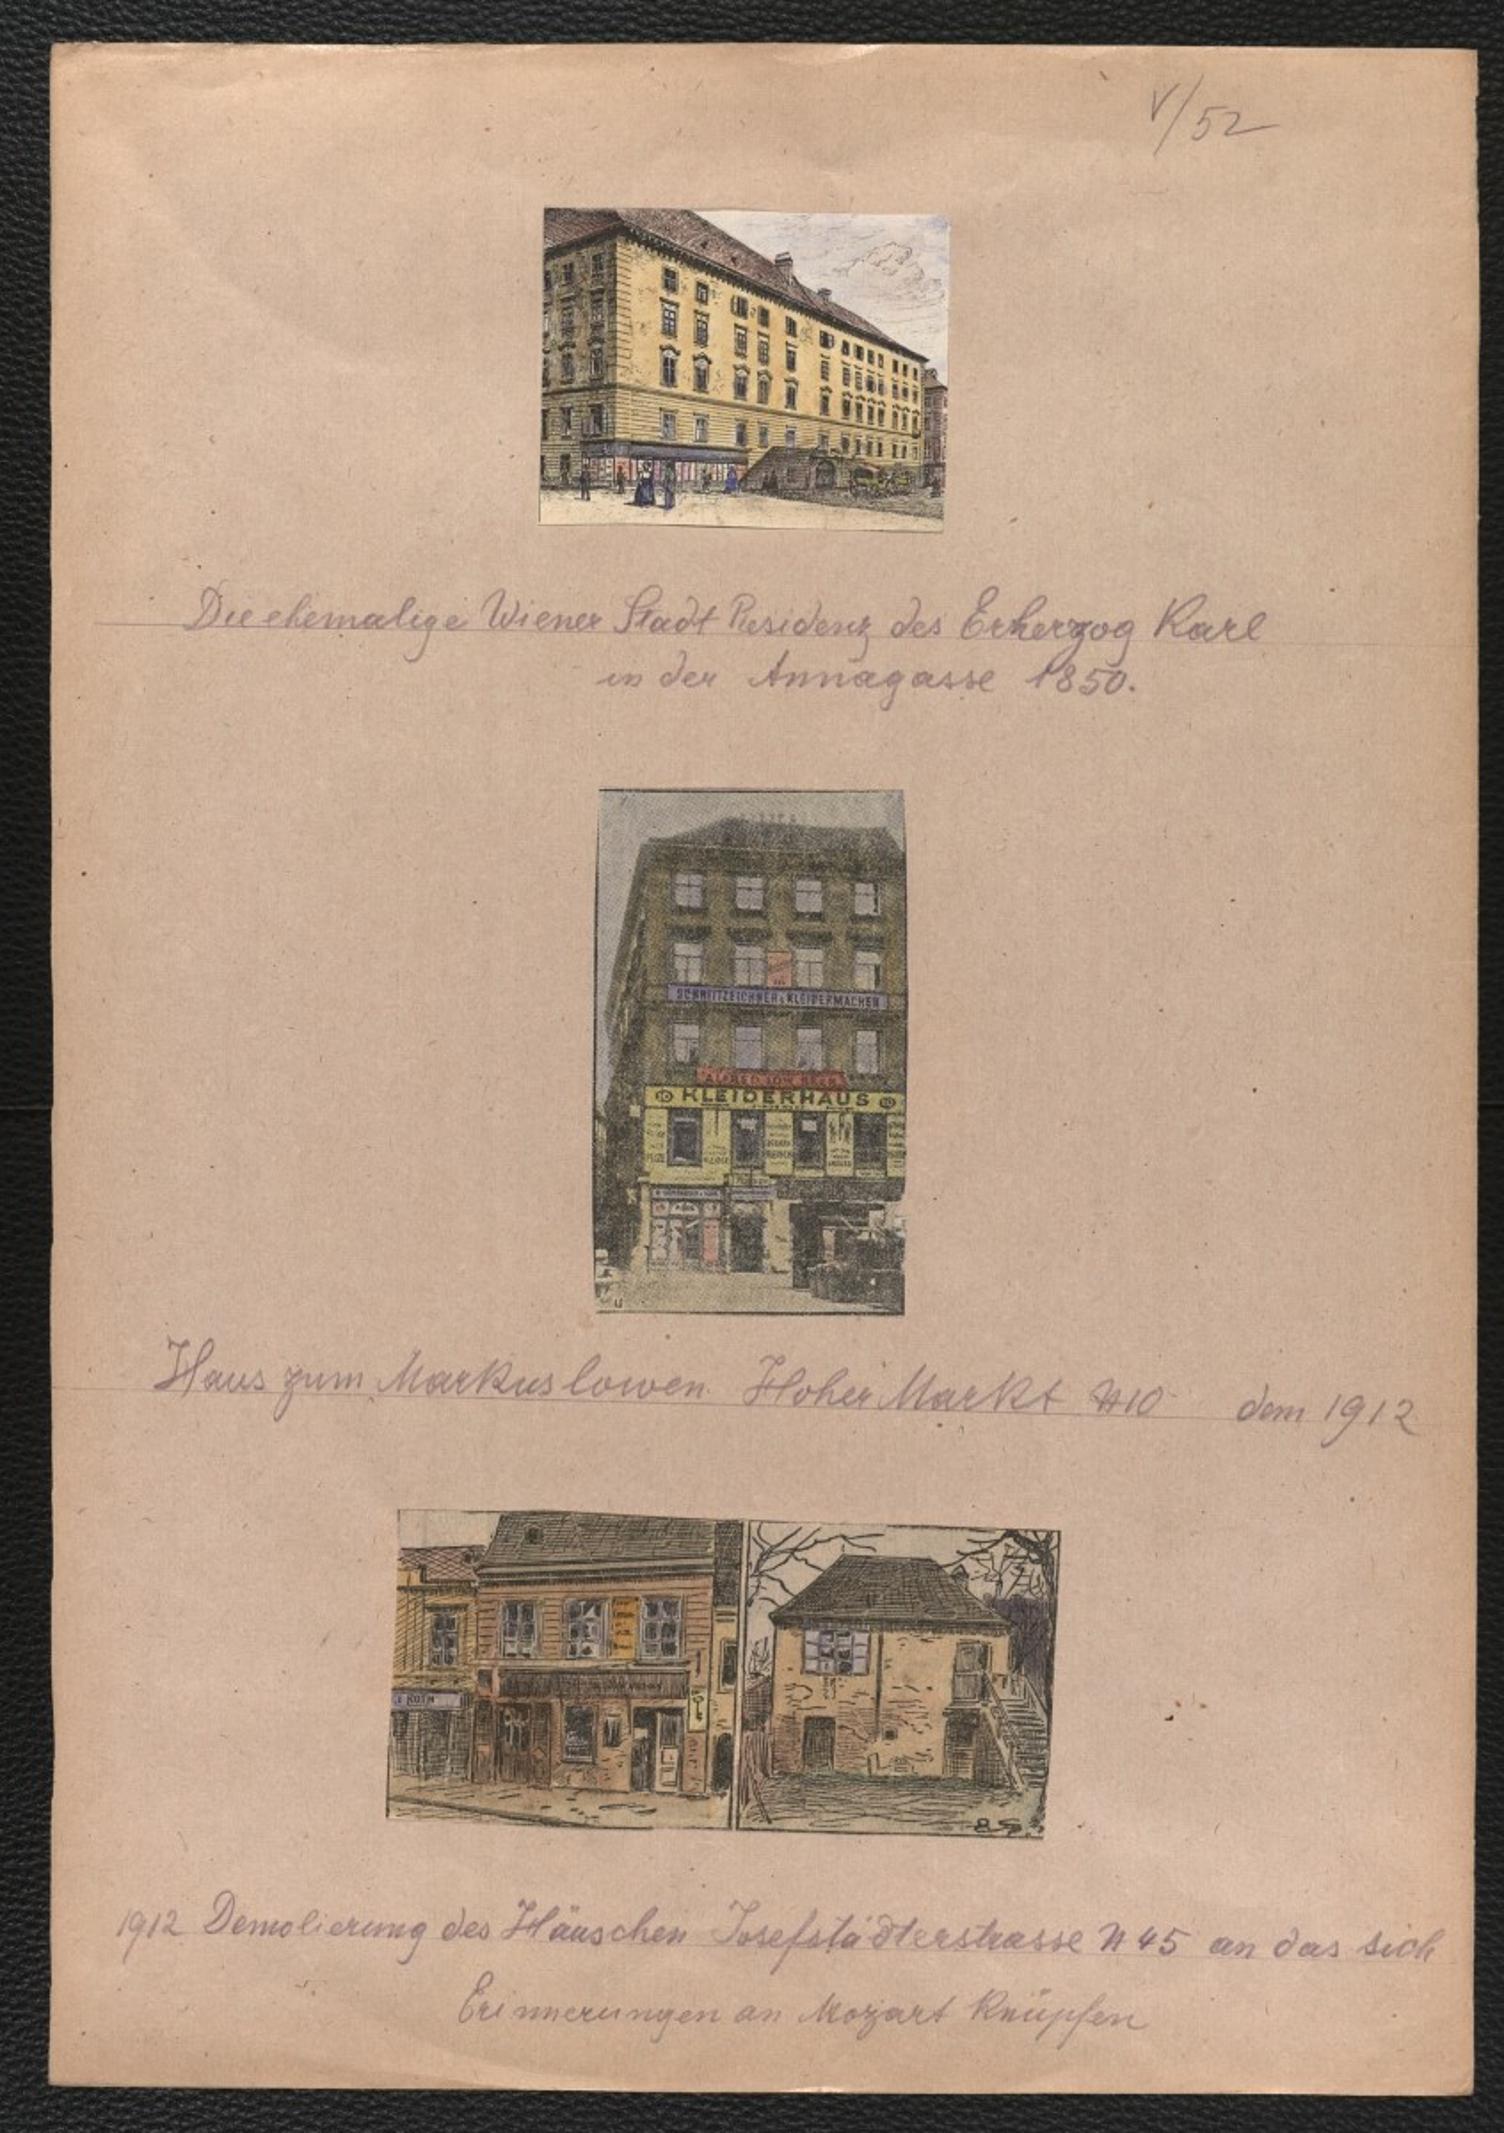 V/52
Die ehemalige Wiener Stadt Residenz des Erherzog Karl
in der Annagasse 1850.
SCHNITTZEICHNEN & KLEIDERMACHEN
ALFRED LÖW BEER
10 KLEIDERHAUS 10
Haus zum Markuslowen Hoher Markt N10 dem 1912
ROTH
1912 Demolierung des Häuschen Josefstädterstrasse N 45 an das sich
Erinnerungen an Mozart Knüpfen